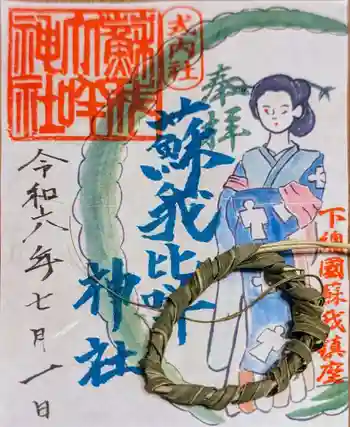 式内社
蘇我
比咩
神社
奉拝
蘇我比咩
神社
下總國蘇我鎮座
令和六年七月一日